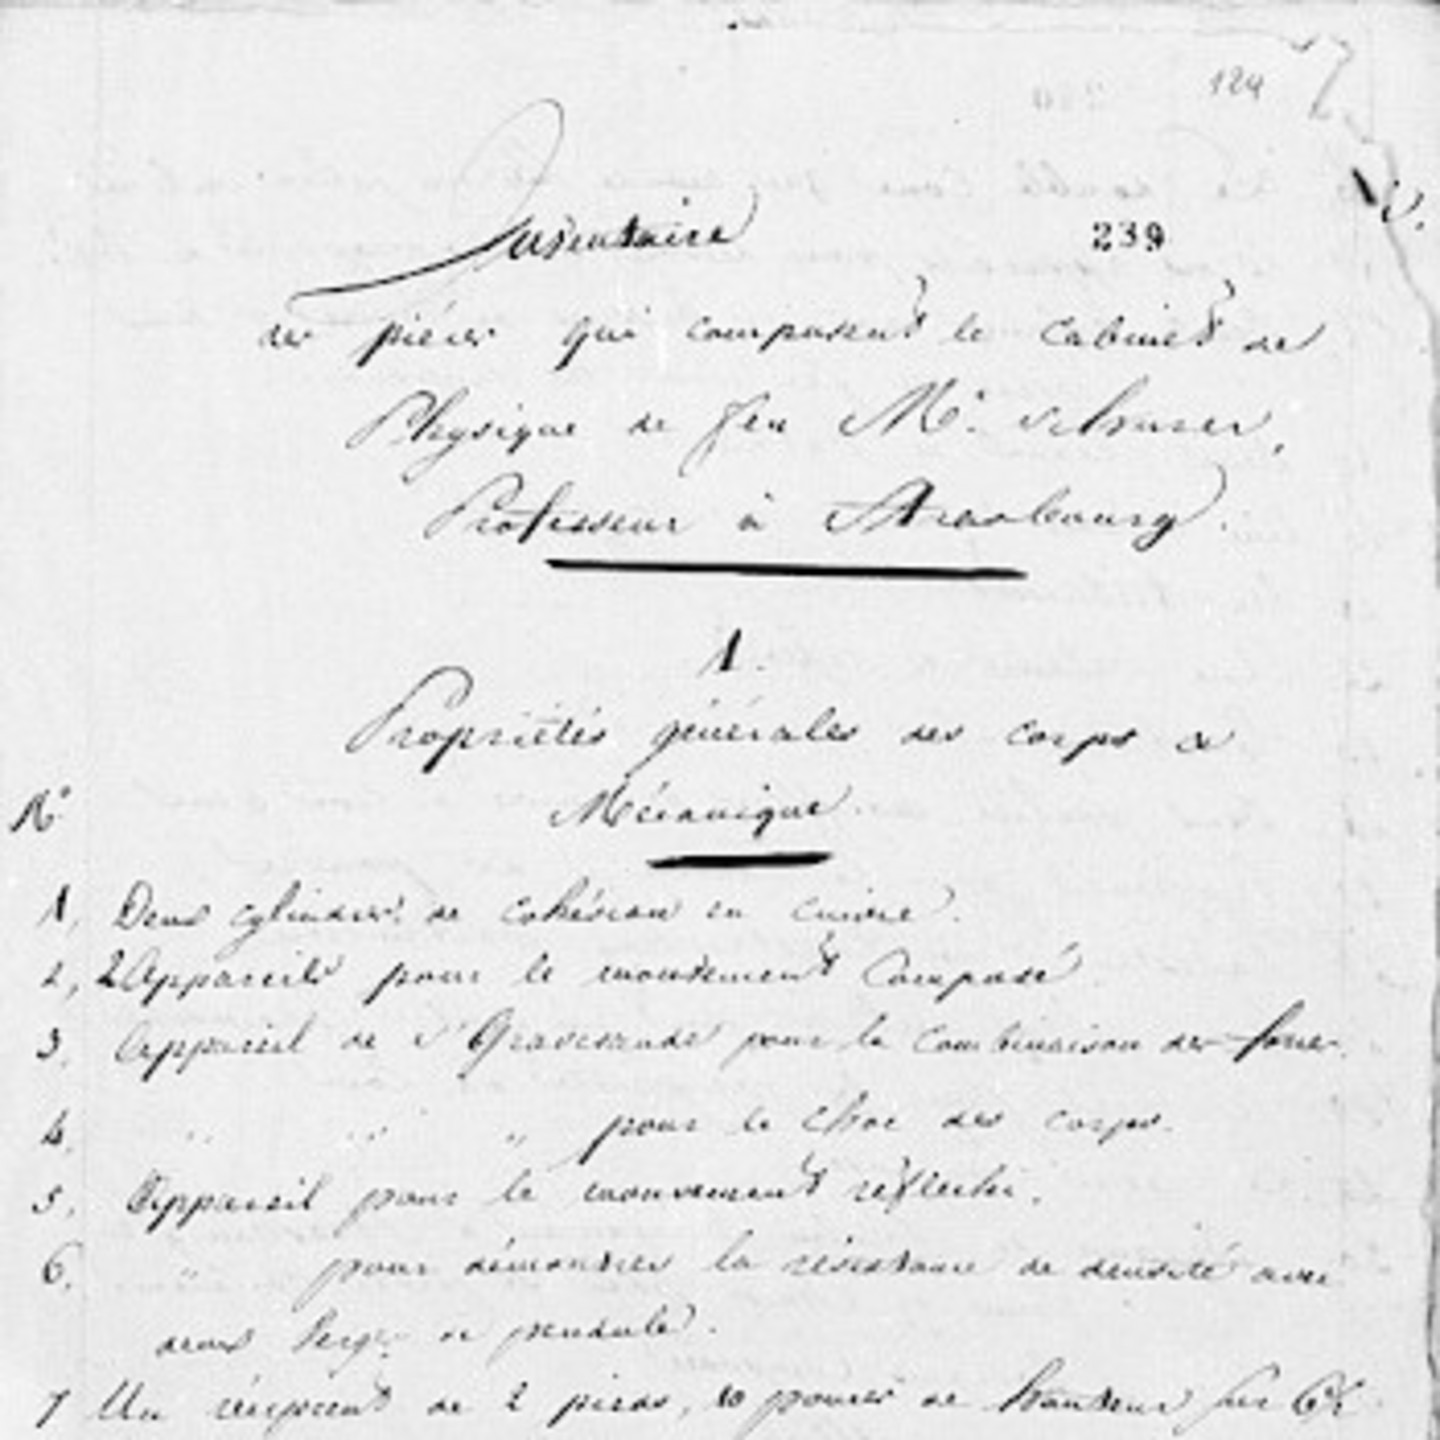 124
Inventaire
239
des pièces qui composent le cabinet de
Physique de feu Mr.
Professeur à Strasbourg.
1.
Propriétés générales des corps &
Mécanique.
No
1, Deux cylindres de cohésion en cuivre.
2, 2 Appareils pour le mouvement composé
3. Appareil de s'Gravesande pour la combinaison des forces.
4. " " " pour le choc des corps.
5. Appareil pour le mouvement réflechi.
6. " pour démontrer la résistance de densité avec
deux de pendule.
7 Un récipient de 2 pieds, 10 pouces de hauteur sur